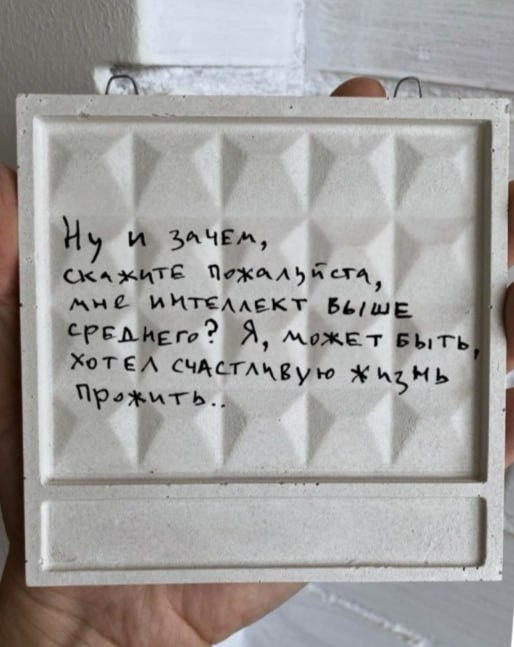 Ну и зачем,
скажите пожалуйста,
мне интеллект выше
среднего? Я, может быть,
хотел счастливую жизнь
прожить..